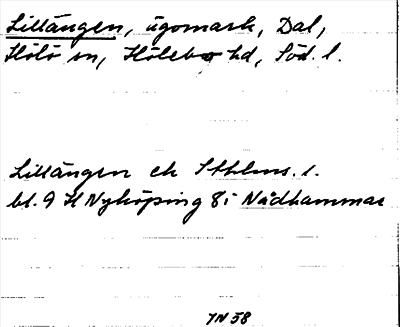 Lillängen, ägomark, Dal,
Hölö sn, Hölebo hd, Söd. l.
Lillängen ek Sthlms. l.
bl. 9 H Nyköping 8i Nådhammar
IN 58